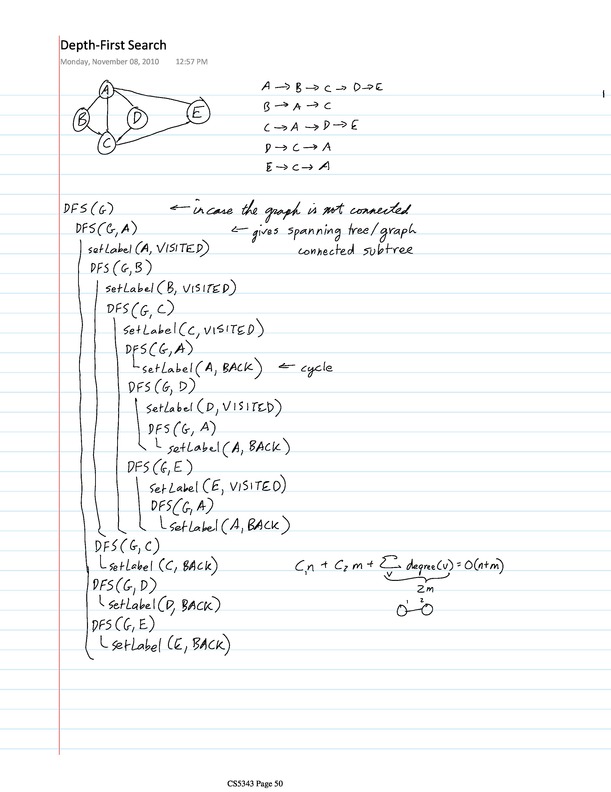 Depth-First Search
Monday, November 08, 2010 12:57 PM
A
B
D
E
C
A → B → C → D → E
B → A → C
C → A → D → E
D → C → A
E → C → A
1
DFS(G) ← in case the graph is not connected
DFS(G,A) ← gives spanning tree/graph
connected subtree
setLabel(A, VISITED)
DFS(G,B)
setLabel(B, VISITED)
DFS(G,C)
setLabel(C, VISITED)
DFS(G,A)
setLabel(A, BACK) ← cycle
DFS(G,D)
setLabel(D, VISITED)
DFS(G,A)
setLabel(A, BACK)
DFS(G,E)
setLabel(E, VISITED)
DFS(G,A)
setLabel(A, BACK)
DFS(G,C)
setLabel(C, BACK)
DFS(G,D)
setLabel(D, BACK)
DFS(G,E)
setLabel(E, BACK)
C₁n + C₂m + Σ degree(v) = O(n+m)
v
2m
1 2
CS5343 Page 50